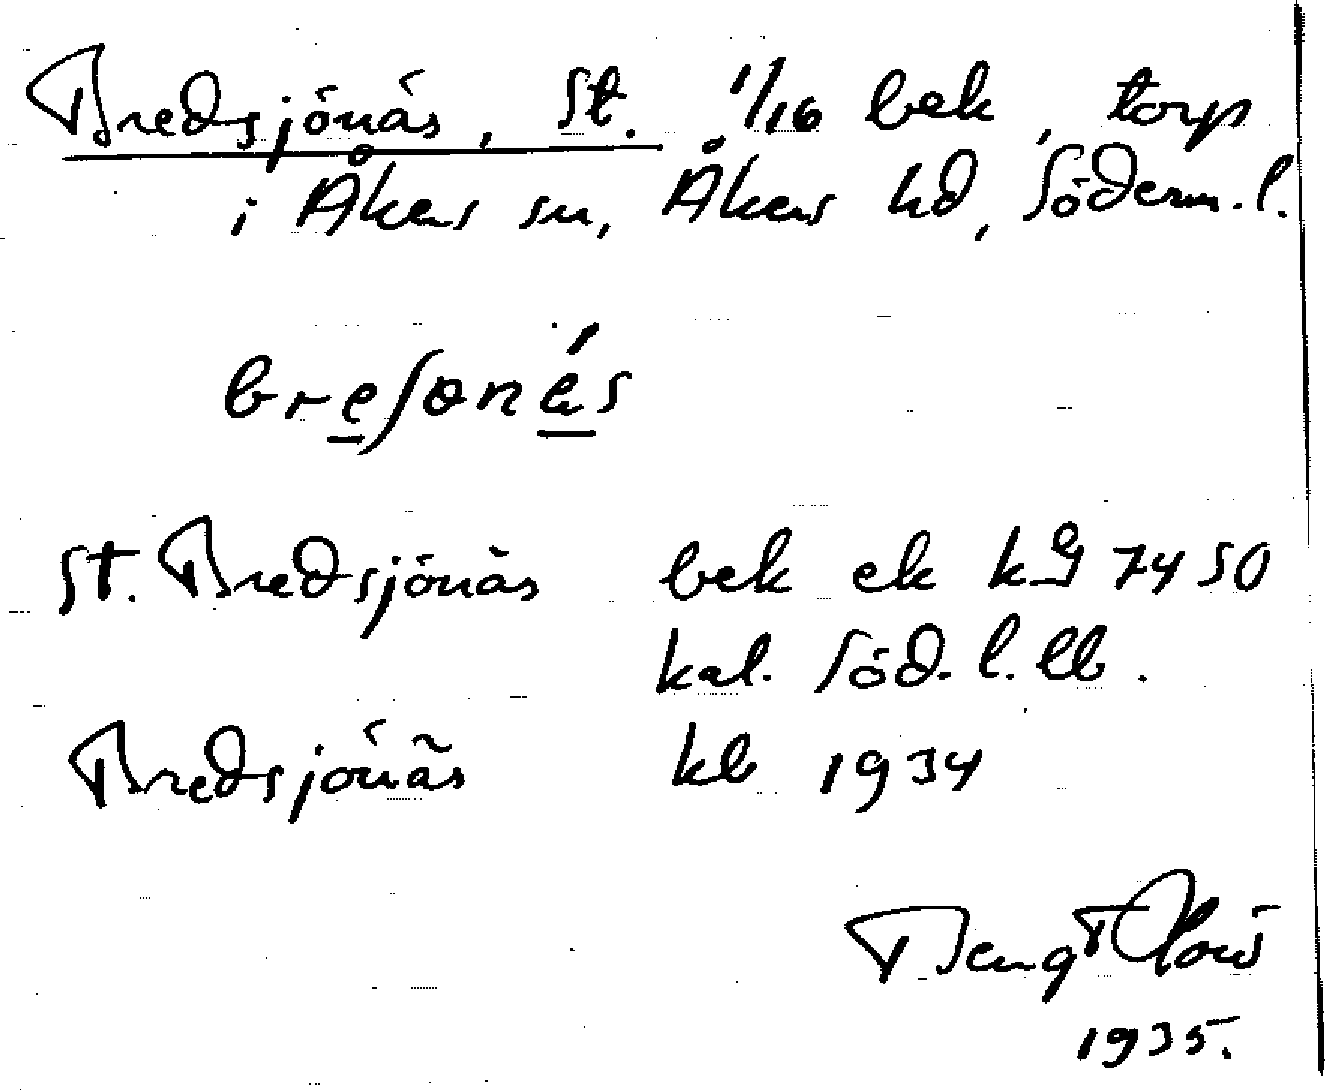 Bredsjönäs, St. 1/16 bek, torp
i Åkers sn, Åkers hd, Söderm. l.
bresonés
St. Bredsjönäs bek ek kg 7450
kal. Söd. l. lb.
Bredsjönäs kb 1934
Bengt
1935.